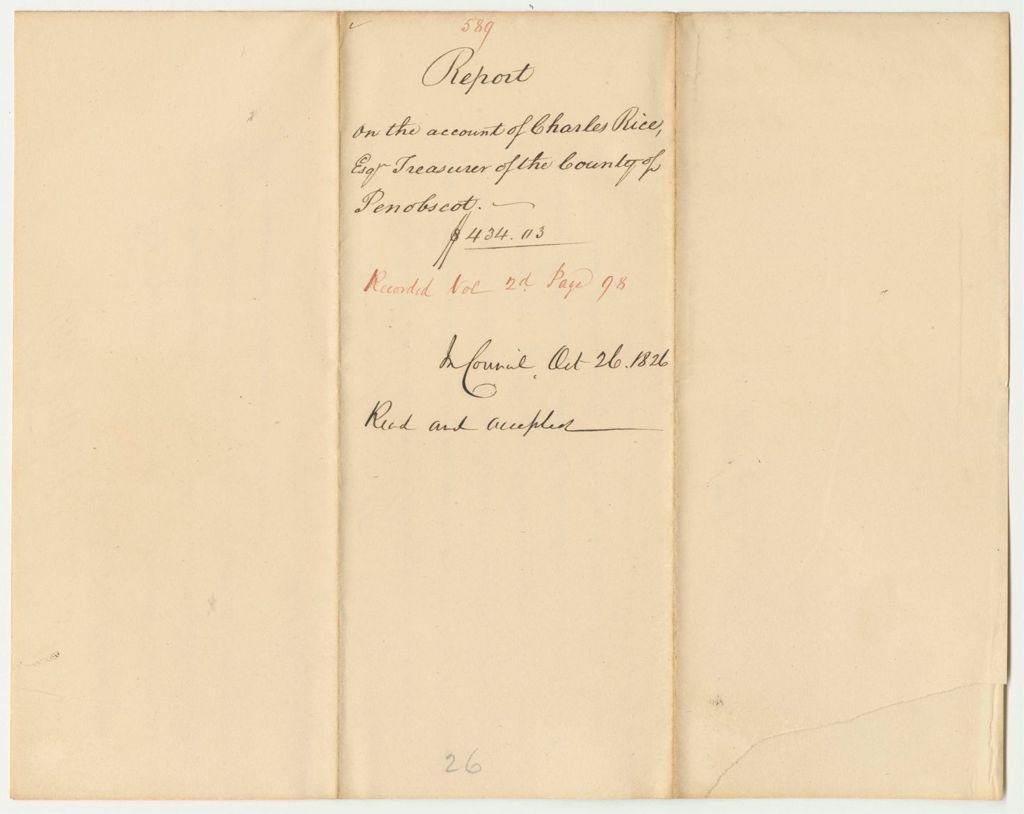 589
Report
On the account of Charles Rice,
Esqr Treasurer of the County of
Penobscot. —
$434.03
Recorded Vol 2d. Page 98
In Council, Oct 26. 1826
Read and accepted
26